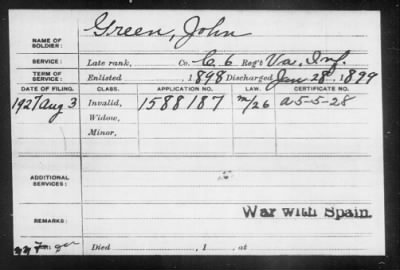 Green, John
NAME OF SOLDIER:
SERVICE: Late rank, Co. C. 6 Reg't Va. Inf.
TERM OF SERVICE: Enlisted , 1898 Discharged Jan 28, 1899
DATE OF FILING. CLASS. APPLICATION NO. LAW. CERTIFICATE NO.
1927 Aug 3 Invalid, 1588187 m/26 a-5-5-28
Widow,
Minor,
ADDITIONAL SERVICES:
War with Spain.
REMARKS:
Died , 1 , at